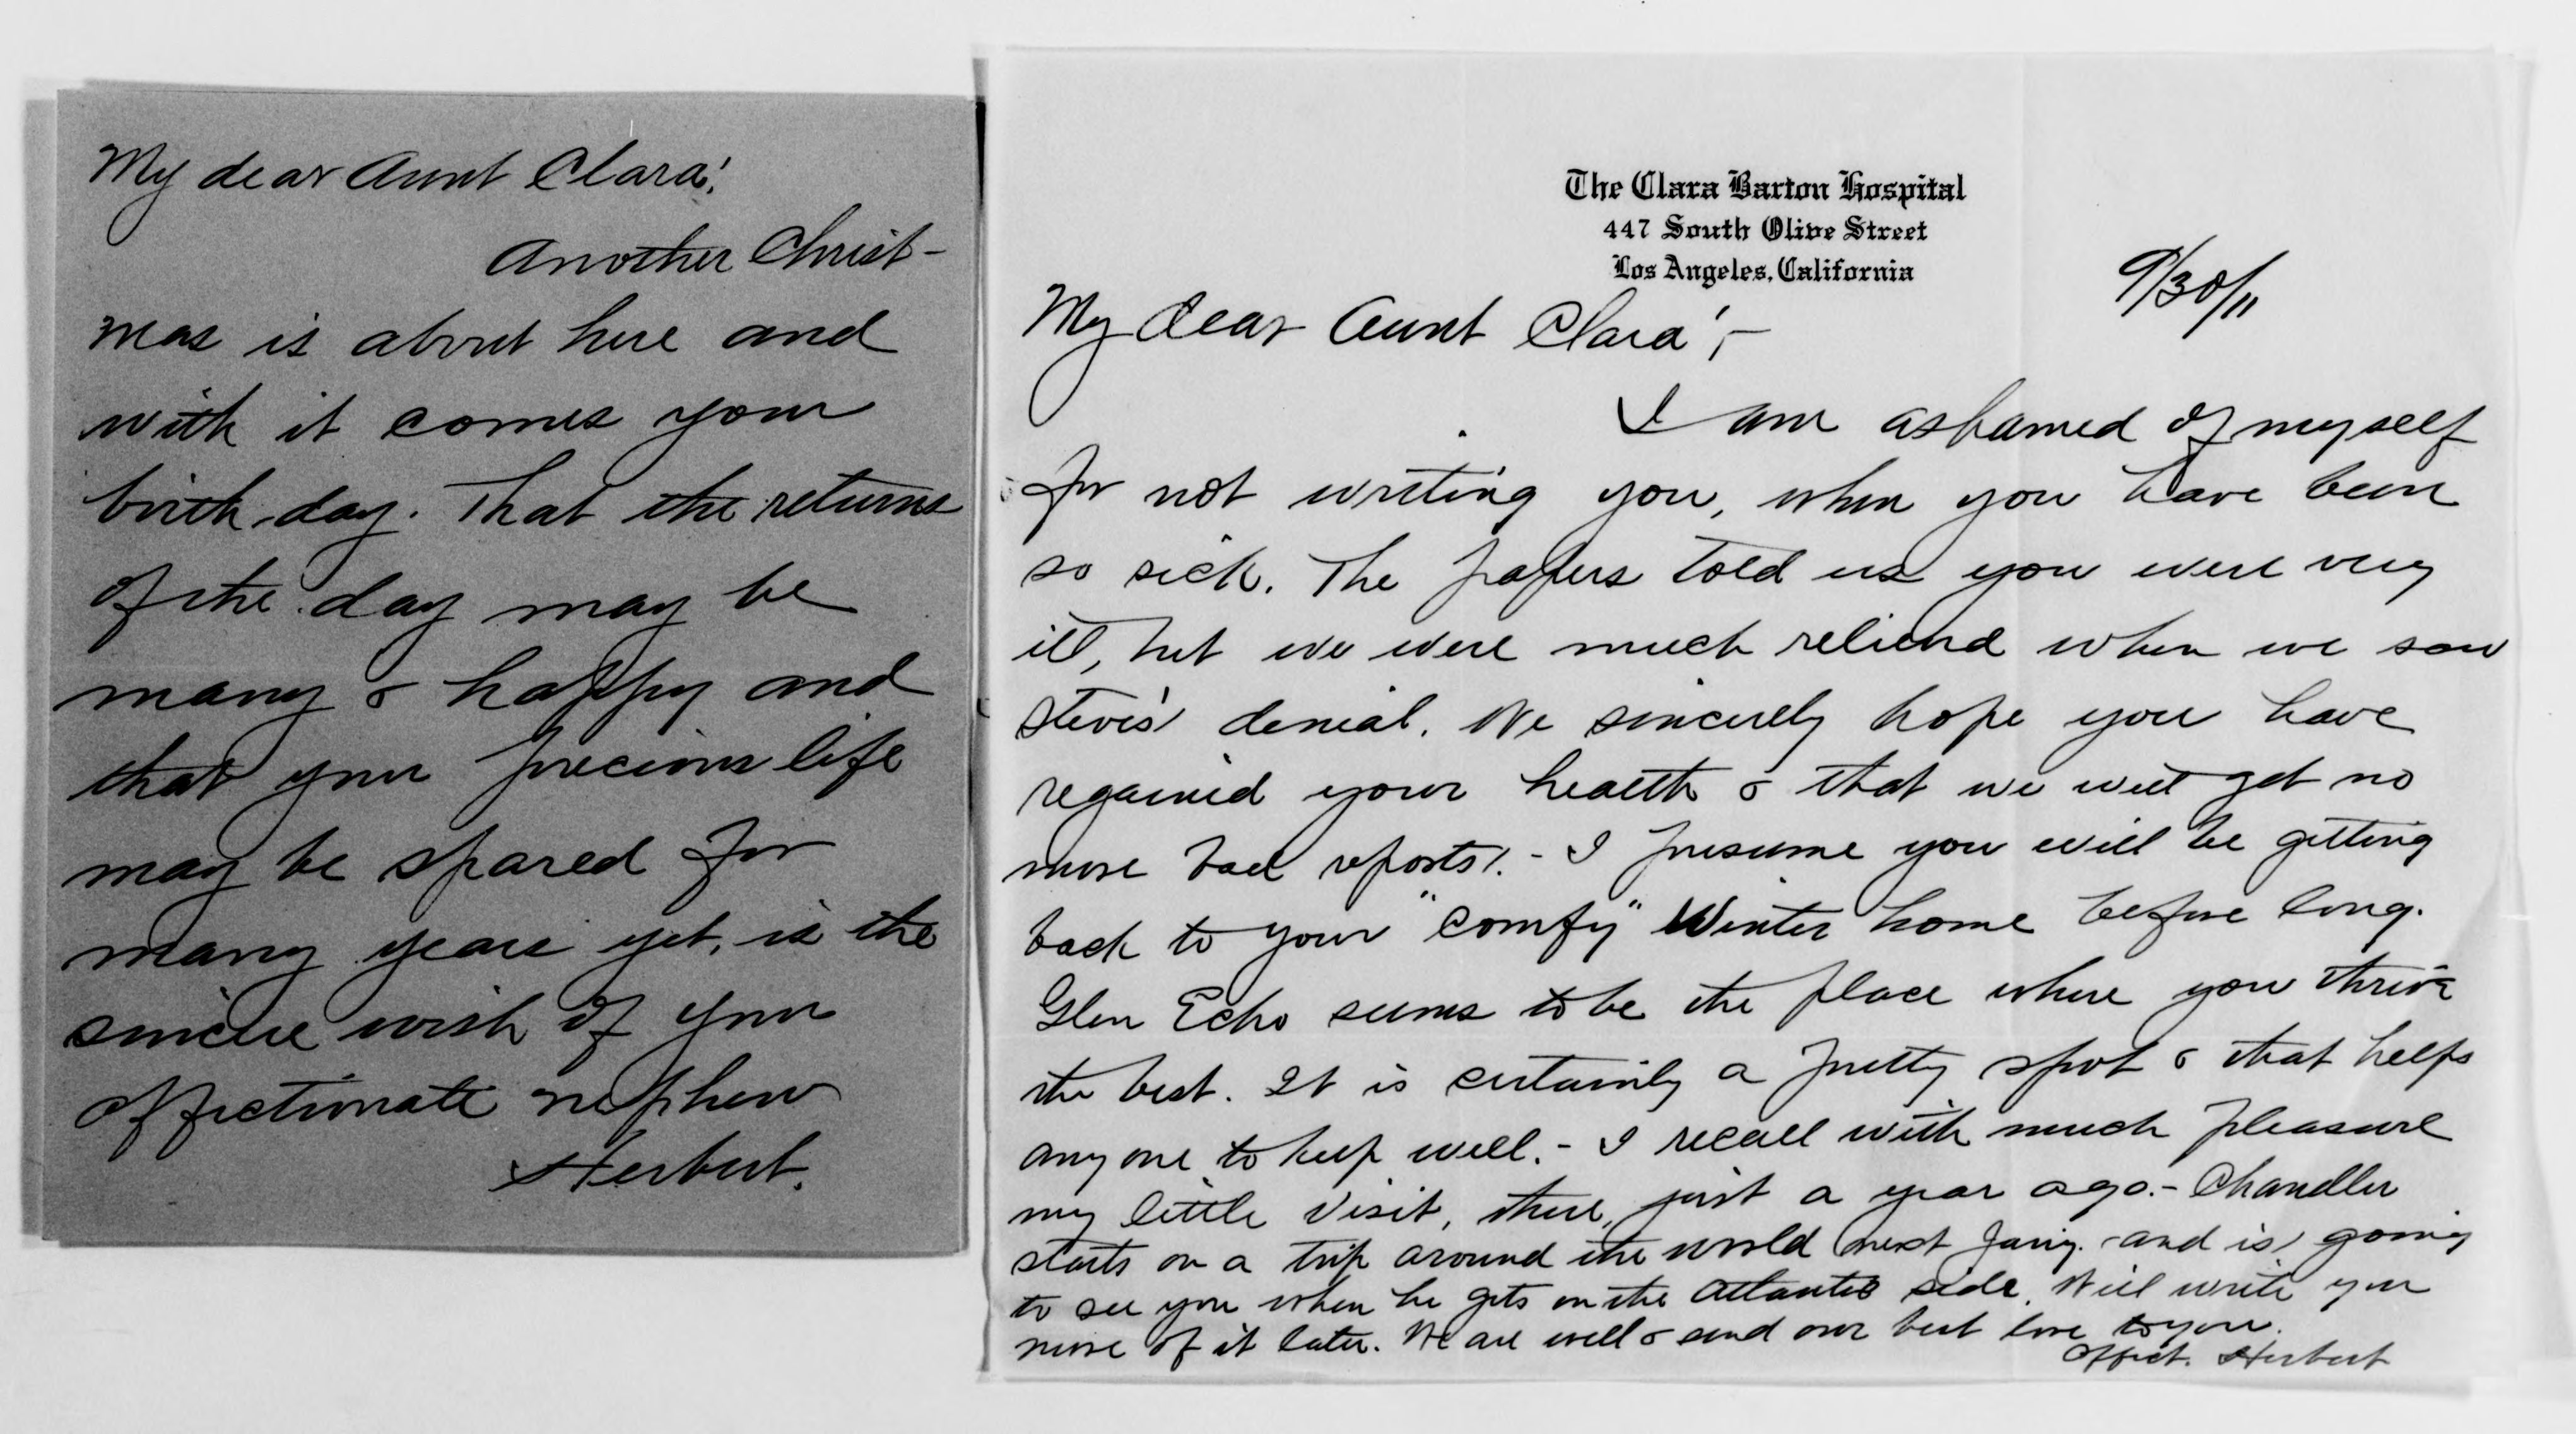 My dear Aunt Clara:
Another Christ-
mas is about here and
with it comes your
birth-day. That the returns
of the day may be
many & happy and
that your precious life
may be spared for
many years yet, is the
sincere wish of your
affectionate nephew
Herbert.
The Clara Barton Hospital
447 South Olive Street
Los Angeles, California
9/30/11
My dear Aunt Clara:-
I am ashamed of myself
for not writing you, when you have been
so sick. The papers told us you were very
ill, but we were much relieved when we saw
Steve's denial. We sincerely hope you have
regained your health & that we will get no
more bad reports. - I presume you will be getting
back to your "comfy" Winter home before long.
Glen Echo seems to be the place where you thrive
the best. It is certainly a pretty spot & that helps
any one to keep well. - I recall with much pleasure
my little visit, there, just a year ago. - Chandler
starts on a trip around the world next Jany. and is going
to see you when he gets on the Atlantic side. Will write you
more of it later. We are well & send our best love to you.
Affect. Herbert